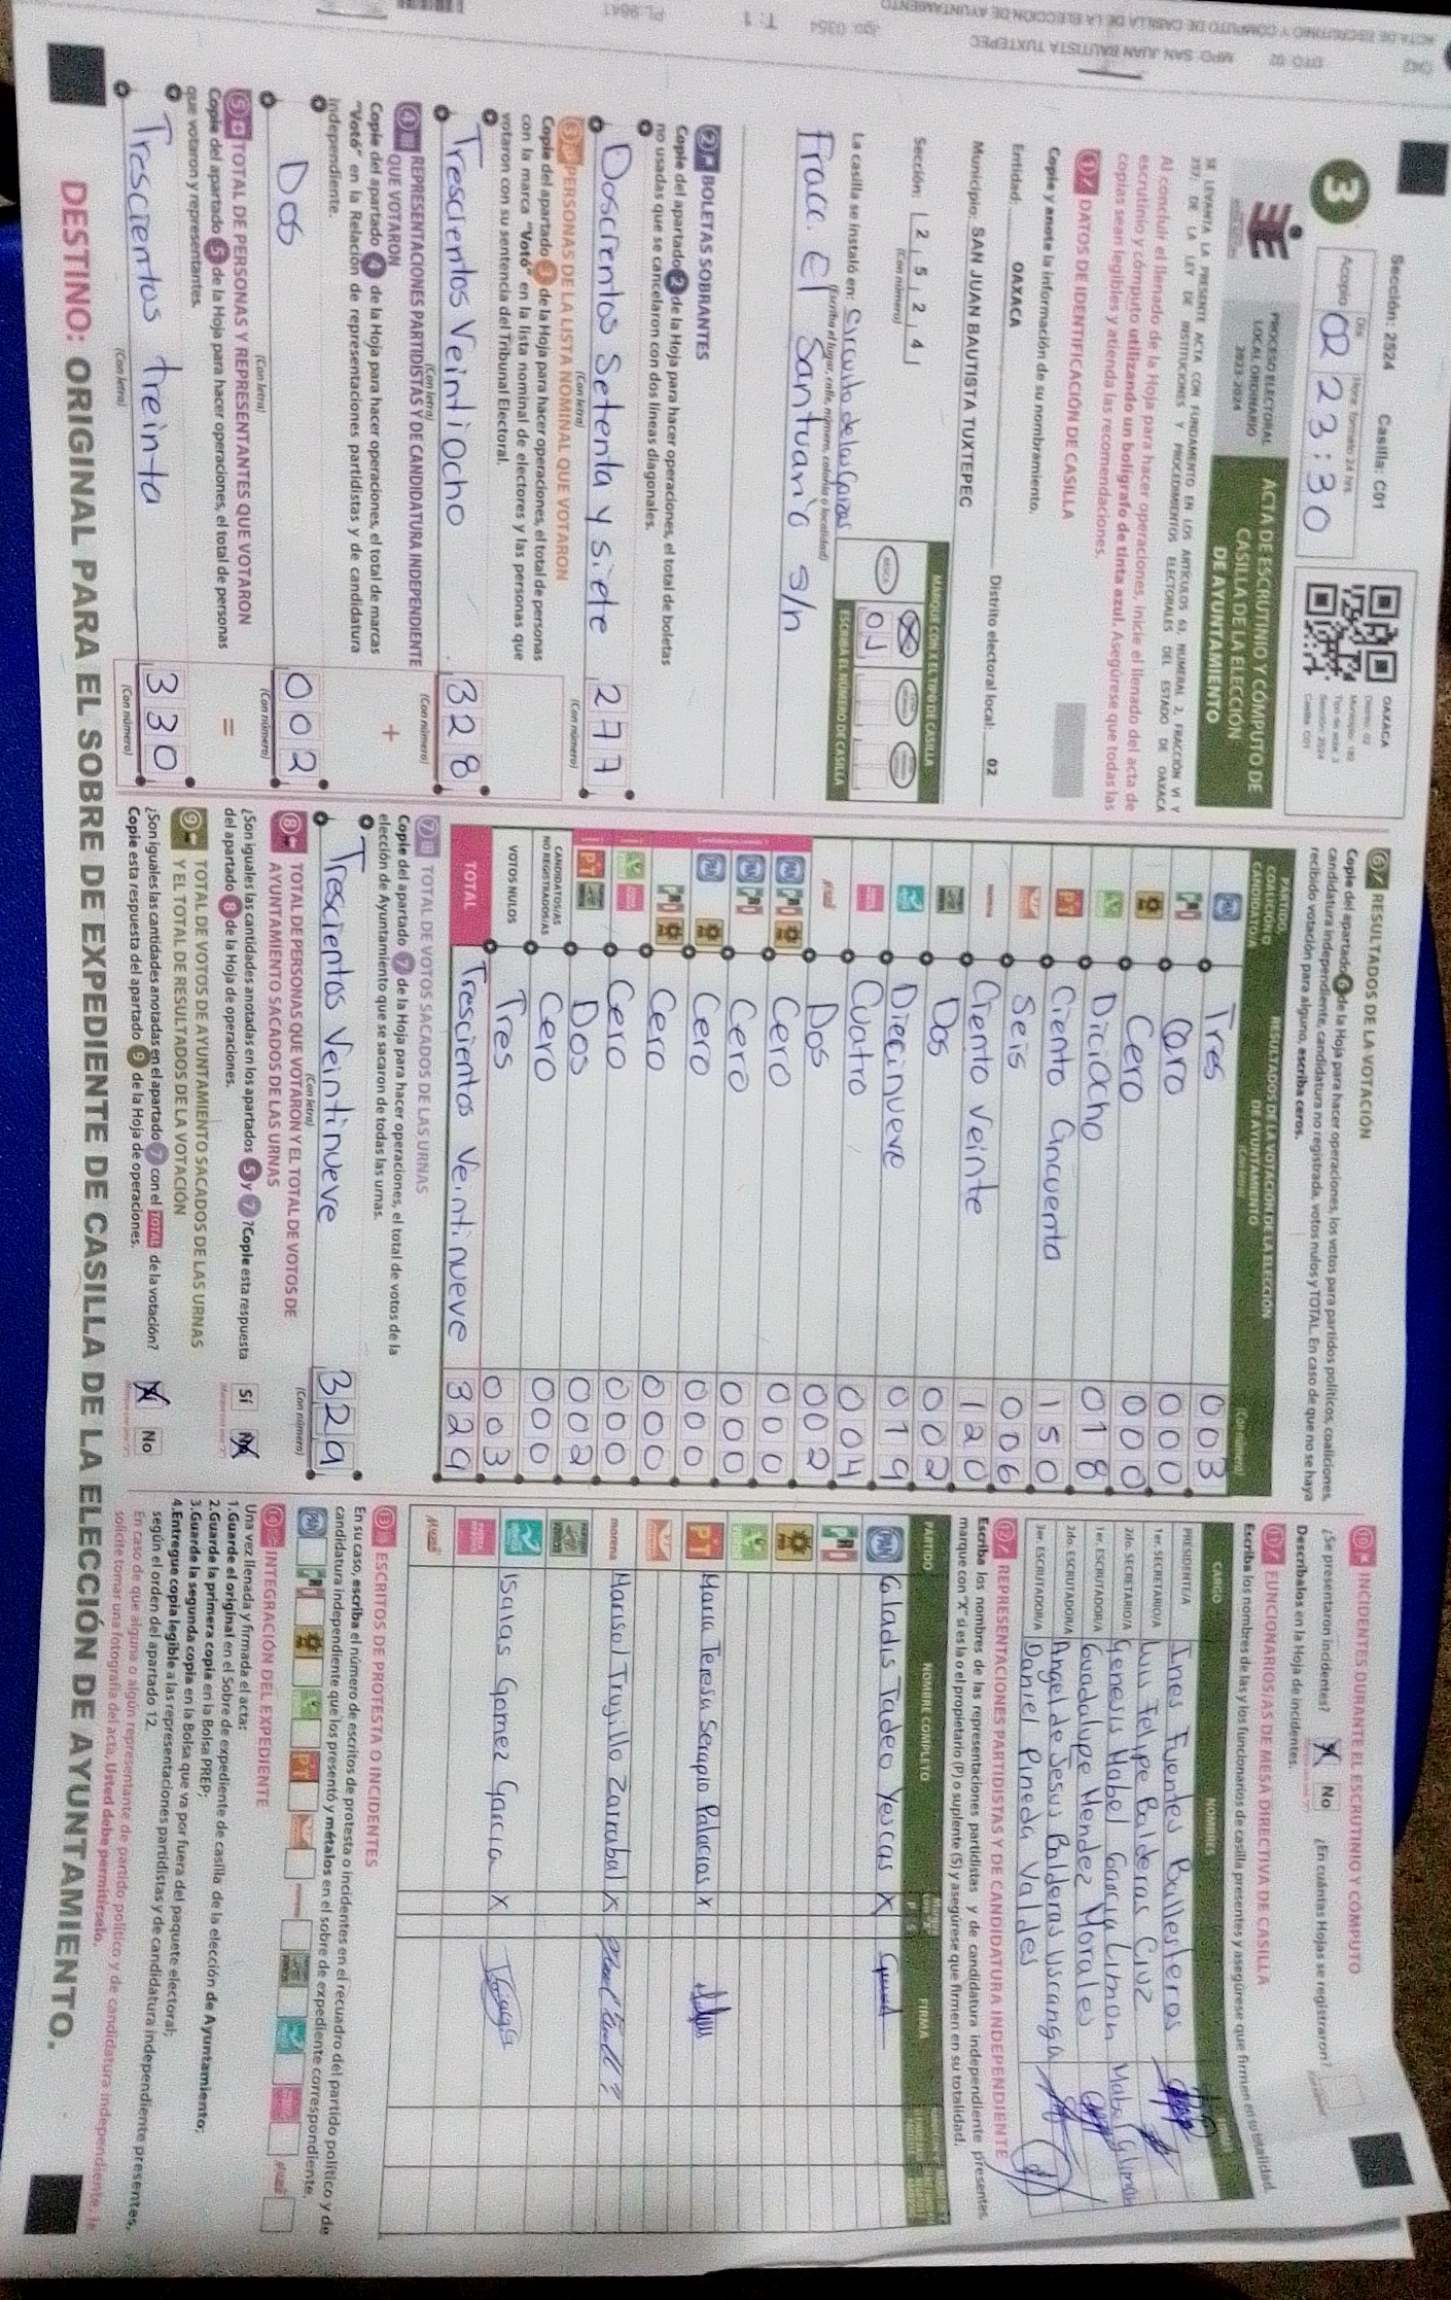 Sección: 2524 Casilla: C01
3
Acopio 02 23:30
Día Hora formato 24 hrs.
OAXACA
PROCESO ELECTORAL
LOCAL ORDINARIO
2023-2024
ACTA DE ESCRUTINIO Y CÓMPUTO DE
CASILLA DE LA ELECCIÓN
DE AYUNTAMIENTO
SE LEVANTA LA PRESENTE ACTA CON FUNDAMENTO EN LOS ARTÍCULOS 63, NUMERAL 2, FRACCIÓN VI Y
237, DE LA LEY DE INSTITUCIONES Y PROCEDIMIENTOS ELECTORALES DEL ESTADO DE OAXACA
Al concluir el llenado de la Hoja para hacer operaciones, inicie el llenado del acta de
escrutinio y cómputo utilizando un bolígrafo de tinta azul. Asegúrese que todas las
copias sean legibles y atienda las recomendaciones.
1 DATOS DE IDENTIFICACIÓN DE CASILLA
Copie y anote la información de su nombramiento.
Entidad: OAXACA Distrito electoral local: 02
Municipio: SAN JUAN BAUTISTA TUXTEPEC
Sección: 2 5 2 4
(Con número)
MARQUE CON X EL TIPO DE CASILLA
BÁSICA
01
ESCRIBA EL NÚMERO DE CASILLA
La casilla se instaló en: Circuito de las Garzas
(Escriba el lugar, calle, número, colonia o localidad)
Fracc. El Santuario s/n
2 BOLETAS SOBRANTES
Copie del apartado 2 de la Hoja para hacer operaciones, el total de boletas
no usadas que se cancelaron con dos líneas diagonales.
Doscientos Setenta y siete 277
(Con letra) (Con número)
3 PERSONAS DE LA LISTA NOMINAL QUE VOTARON
Copie del apartado 3 de la Hoja para hacer operaciones, el total de personas
con la marca "Votó" en la lista nominal de electores y las personas que
votaron con su sentencia del Tribunal Electoral.
Trescientos Veintiocho 328
(Con letra) (Con número)
4 REPRESENTACIONES PARTIDISTAS Y DE CANDIDATURA INDEPENDIENTE
QUE VOTARON
+
Copie del apartado 4 de la Hoja para hacer operaciones, el total de marcas
"Votó" en la Relación de representaciones partidistas y de candidatura
independiente.
Dos 002
(Con letra) (Con número)
5 TOTAL DE PERSONAS Y REPRESENTANTES QUE VOTARON
=
Copie del apartado 5 de la Hoja para hacer operaciones, el total de personas
que votaron y representantes.
Trescientos treinta 330
(Con letra) (Con número)
6 RESULTADOS DE LA VOTACIÓN
Copie del apartado 6 de la Hoja para hacer operaciones, los votos para partidos políticos, coaliciones,
candidatura independiente, candidatura no registrada, votos nulos y TOTAL. En caso de que no se haya
recibido votación para alguno, escriba ceros.
PARTIDO, COALICIÓN O CANDIDATO/A RESULTADOS DE LA VOTACIÓN DE LA ELECCIÓN DE AYUNTAMIENTO (Con letra) (Con número)
PAN Tres 003
PRI Cero 000
Cero 000
Diciocho 018
PT Ciento Cincuenta 150
Seis 006
morena Ciento Veinte 120
Dos 002
Diecinueve 019
Cuatro 004
Dos 002
PAN PRI Cero 000
PAN PRI Cero 000
PAN Cero 000
PRI Cero 000
Cero 000
PT Dos 002
CANDIDATOS/AS NO REGISTRADOS/AS Cero 000
VOTOS NULOS Tres 003
TOTAL Trescientos Veintinueve 329
7 TOTAL DE VOTOS SACADOS DE LAS URNAS
Copie del apartado 7 de la Hoja para hacer operaciones, el total de votos de la
elección de Ayuntamiento que se sacaron de todas las urnas.
Trescientos Veintinueve 329
(Con letra) (Con número)
8 TOTAL DE PERSONAS QUE VOTARON Y EL TOTAL DE VOTOS DE
AYUNTAMIENTO SACADOS DE LAS URNAS
¿Son iguales las cantidades anotadas en los apartados 5 y 7? Copie esta respuesta
del apartado 8 de la Hoja de operaciones.
Sí No X
9 TOTAL DE VOTOS DE AYUNTAMIENTO SACADOS DE LAS URNAS
Y EL TOTAL DE RESULTADOS DE LA VOTACIÓN
¿Son iguales las cantidades anotadas en el apartado 7 con el TOTAL de la votación?
Copie esta respuesta del apartado 9 de la Hoja de operaciones.
X No
10 INCIDENTES DURANTE EL ESCRUTINIO Y CÓMPUTO
¿Se presentaron incidentes? X No ¿En cuántas Hojas se registraron?
Descríbalos en la Hoja de incidentes.
11 FUNCIONARIOS/AS DE MESA DIRECTIVA DE CASILLA
Escriba los nombres de las y los funcionarios de casilla presentes y asegúrese que firmen en su totalidad.
CARGO NOMBRES FIRMA
PRESIDENTE/A Ines Fuentes Ballesteros
1er. SECRETARIO/A Luis Felipe Balderas Cruz
2do. SECRETARIO/A Genesis Mabel Garcia Limon
1er. ESCRUTADOR/A Guadalupe Mendez Morales
2do. ESCRUTADOR/A Angel de Jesus Balderas Uscanga
3er. ESCRUTADOR/A Daniel Pineda Valdes
12 REPRESENTACIONES PARTIDISTAS Y DE CANDIDATURA INDEPENDIENTE
Escriba los nombres de las representaciones partidistas y de candidatura independiente presentes,
marque con "X" si es la o el propietario (P) o suplente (S) y asegúrese que firmen en su totalidad.
PARTIDO NOMBRE COMPLETO P S FIRMA
PAN Gladis Tadeo Yescas X
PRI
PT Maria Teresa Serapio Palacios X
morena Marisol Trujillo Zarrabal X
Isaias Gomez Garcia X
13 ESCRITOS DE PROTESTA O INCIDENTES
En su caso, escriba el número de escritos de protesta o incidentes en el recuadro del partido político y de
candidatura independiente que los presentó y métalos en el sobre de expediente correspondiente.
PAN PRI PT
INTEGRACIÓN DEL EXPEDIENTE
Una vez llenada y firmada el acta:
1.Guarde el original en el Sobre de expediente de casilla de la elección de Ayuntamiento;
2.Guarde la primera copia en la Bolsa PREP;
3.Guarde la segunda copia en la Bolsa que va por fuera del paquete electoral;
4.Entregue copia legible a las representaciones partidistas y de candidatura independiente presentes,
según el orden del apartado 12.
En caso de que alguna o algún representante de partido político y de candidatura independiente, le
solicite tomar una fotografía del acta, Usted debe permitírselo.
DESTINO: ORIGINAL PARA EL SOBRE DE EXPEDIENTE DE CASILLA DE LA ELECCIÓN DE AYUNTAMIENTO.
ACTA DE ESCRUTINIO Y CÓMPUTO DE CASILLA DE LA ELECCIÓN DE AYUNTAMIENTO
DTO 02 MPO: SAN JUAN BAUTISTA TUXTEPEC
T: 1